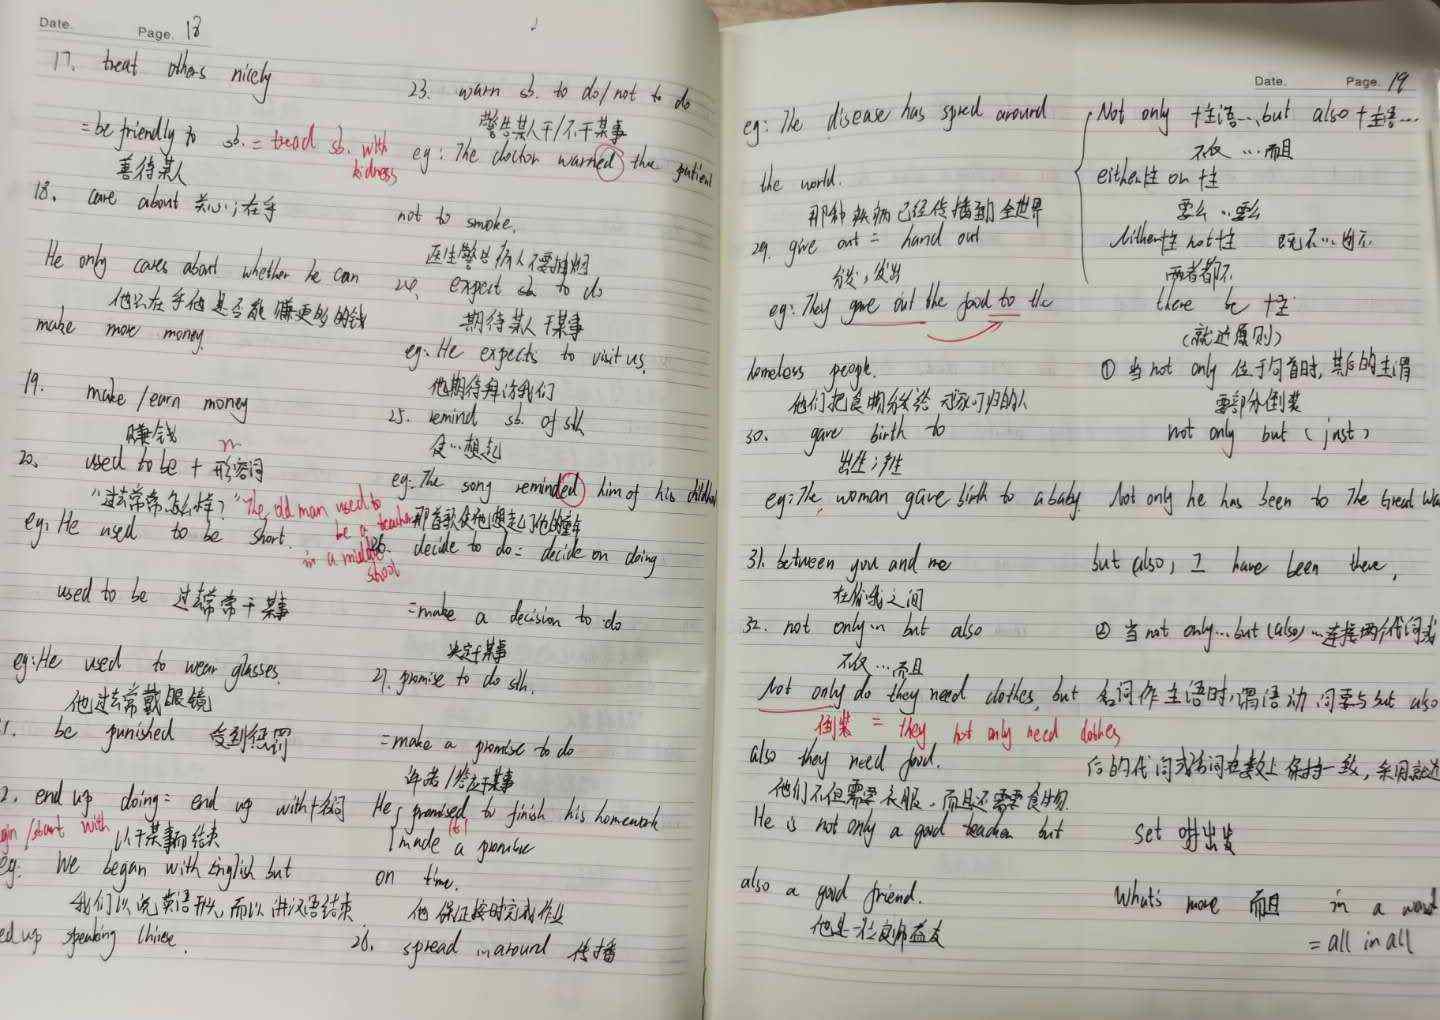 Date.
Page. 18
17. treat others nicely
= be friendly to sb. = tread sb. with
kidness
善待某人
18. care about 关心;在乎
He only cares about whether he can
他只在乎他是否能赚更多的钱
make more money.
19. make / earn money
赚钱
n
20. used to be + 形容词
"过去常常怎么样?" The old man used to
be a teacher
in a middle
shool
eg: He used to be short.
used to be 过去常常干某事
eg: He used to wear glasses.
他过去常戴眼镜
1. be punished 受到惩罚
2. end up doing = end up with + 名词
gin / start with 以干某事而结束
eg. We began with English but
我们以说英语开头,而以讲汉语结束
ed up speaking Chinese.
23. warn sb. to do / not to do
警告某人干/不干某事
eg: The doctor warned the patient
not to smoke.
医生警告病人不要抽烟
24. expect sb. to do
期待某人干某事
eg. He expects to visit us.
他期待拜访我们
25. remind sb. of sth
使…想起
eg: The song reminded him of his childhood
那首歌使他想起了他的童年
26. decide to do = decide on doing
= make a decision to do
决定干某事
27. promise to do sth.
= make a promise to do
许诺/答应干某事
He promised to finish his homework
made a promise
on time.
他保证按时完成作业
28. spread in around 传播
Date.
Page. 19
eg: The disease has spred around
the world.
那种疾病已经传播到全世界
29. give out = hand out
分发;发出
eg: They gave out the food to the
homeless people.
他们把食物分发给无家可归的人
30. gave birth to
出生;产生
eg: The woman gave birth to a baby.
31. between you and me
在你我之间
32. not only … but also
不仅…而且
Not only do they need clothes, but
倒装 = they not only need clothes
also they need food.
他们不但需要衣服,而且还需要食物.
He is not only a good teacher but
also a good friend.
他是一位良师益友
Not only +主语…, but also +主语…
不仅…而且
either +主 or +主
要么…要么
既不…也不
两者都不
there be +主
(就近原则)
① 当 not only 位于句首时, 其后的主谓
要部分倒装
not only but (just)
Not only he has been to The Great Wa
but (also) I have been there.
② 当 not only… but (also) … 连接两个代词或
名词作主语时, 谓语动词要与 but also
后的代词或名词在数上保持一致, 采用就近
set 出发
What's more 而且
in a word
= all in all